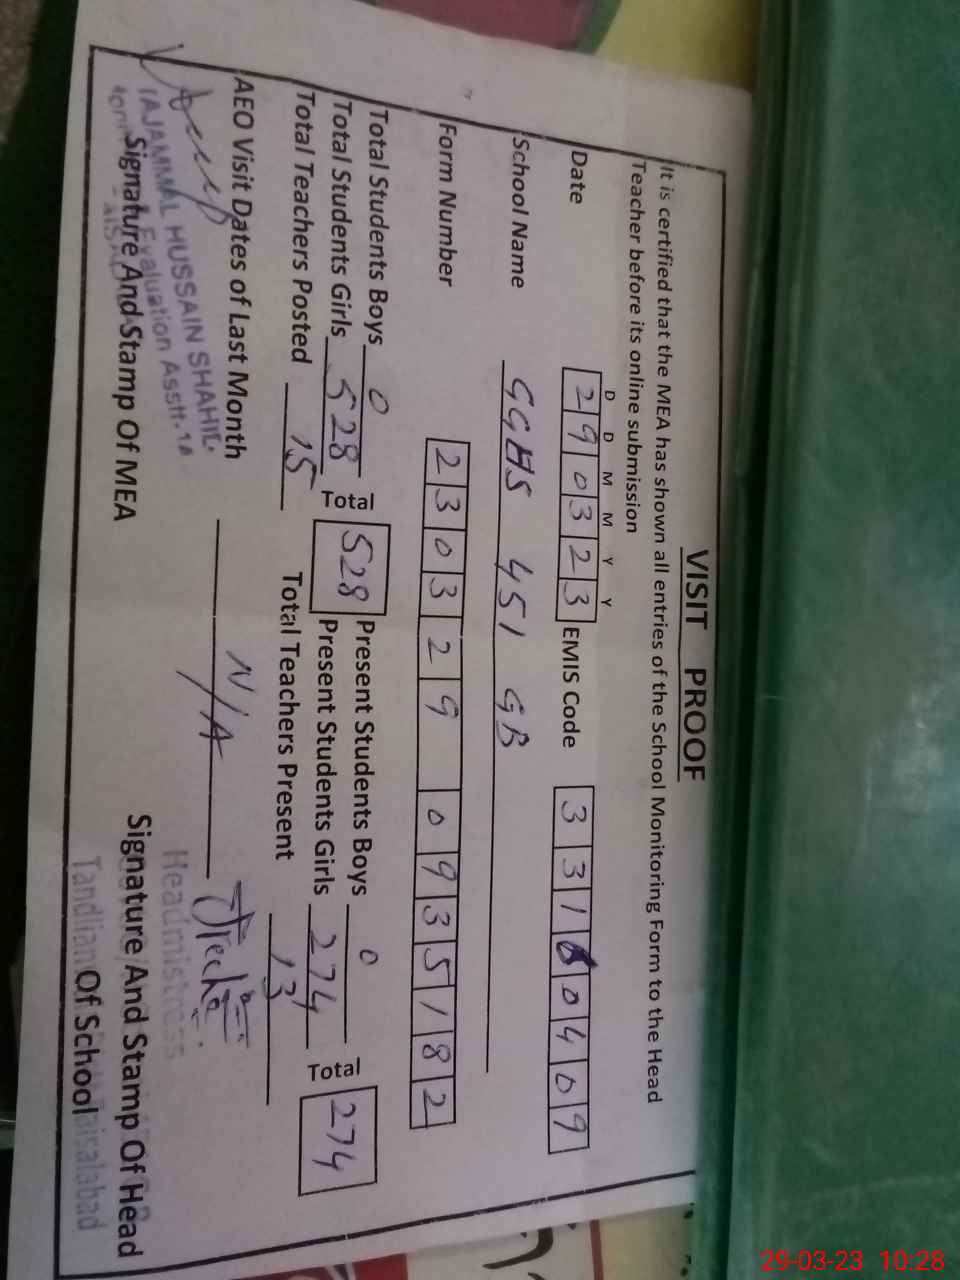 VISIT PROOF
It is certified that the MEA has shown all entries of the School Monitoring Form to the Head
Teacher before its online submission
D D M M Y Y
Date 290323 EMIS Code 33160409
School Name GGHS 451 GB
Form Number 230329 0935182
Total Students Boys 0 Present Students Boys 0
Total Students Girls 528 Total 528 Present Students Girls 274 Total 274
Total Teachers Posted 15 Total Teachers Present 13
AEO Visit Dates of Last Month N/A
TAJAMMAL HUSSAIN SHAHID
Evaluation Asstt-1A
Signature And Stamp Of MEA
Headmistress
Signature And Stamp Of Head
Of School
Tandlian Faisalabad
29-03-23 10:28